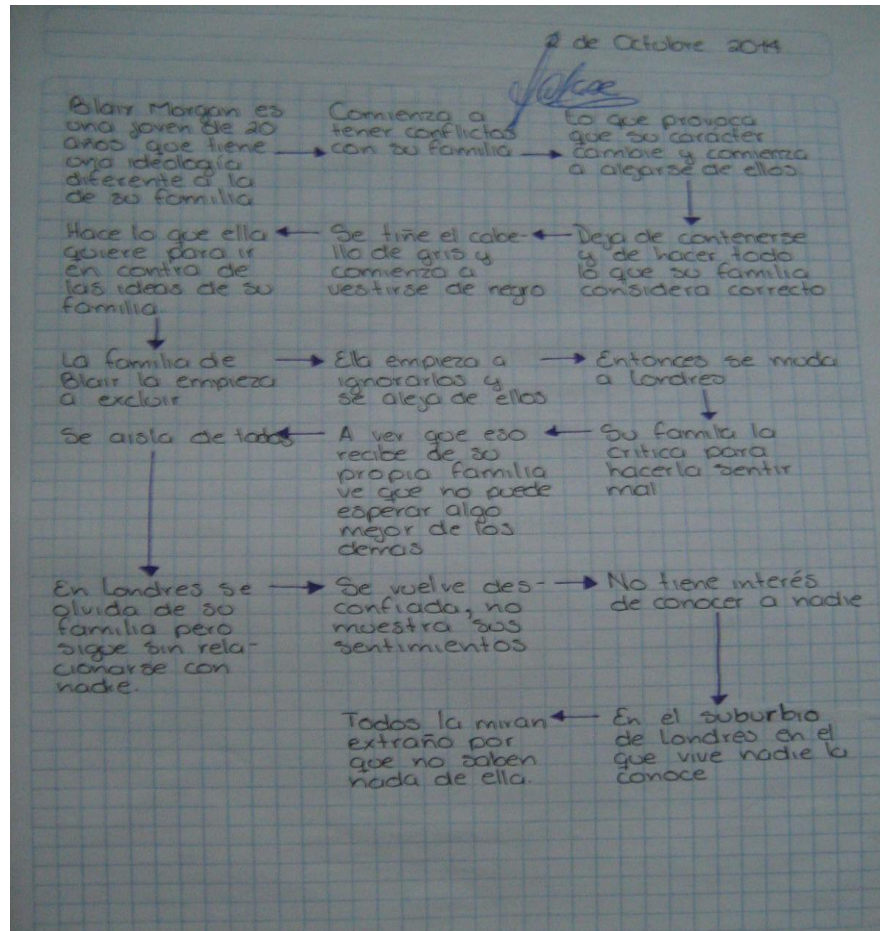 2 de Octubre 2014
Blair Morgan es
una joven de 20
años que tiene
una ideología
diferente a la
de su familia
Comienza a
tener conflictos
con su familia
Lo que provoca
que su carácter
cambie y comienza
a alejarse de ellos
Deja de contenerse
y de hacer todo
lo que su familia
considera correcto
Se tiñe el cabe-
llo de gris y
comienza a
vestirse de negro
Hace lo que ella
quiere para ir
en contra de
las ideas de su
familia.
La familia de
Blair la empieza
a excluir
Ella empieza a
ignorarlos y
se aleja de ellos
Entonces se muda
a Londres
Su familia la
critica para
hacerla sentir
mal
A ver que eso
recibe de su
propia familia
ve que no puede
esperar algo
mejor de los
demas
Se aisla de todos
En Londres se
olvida de su
familia pero
sigue sin rela-
cionarse con
nadie.
Se vuelve des-
confiada, no
muestra sus
sentimientos
No tiene interés
de conocer a nadie
En el suburbio
de Londres en el
que vive nadie la
conoce
Todos la miran
extraño por
que no saben
nada de ella.